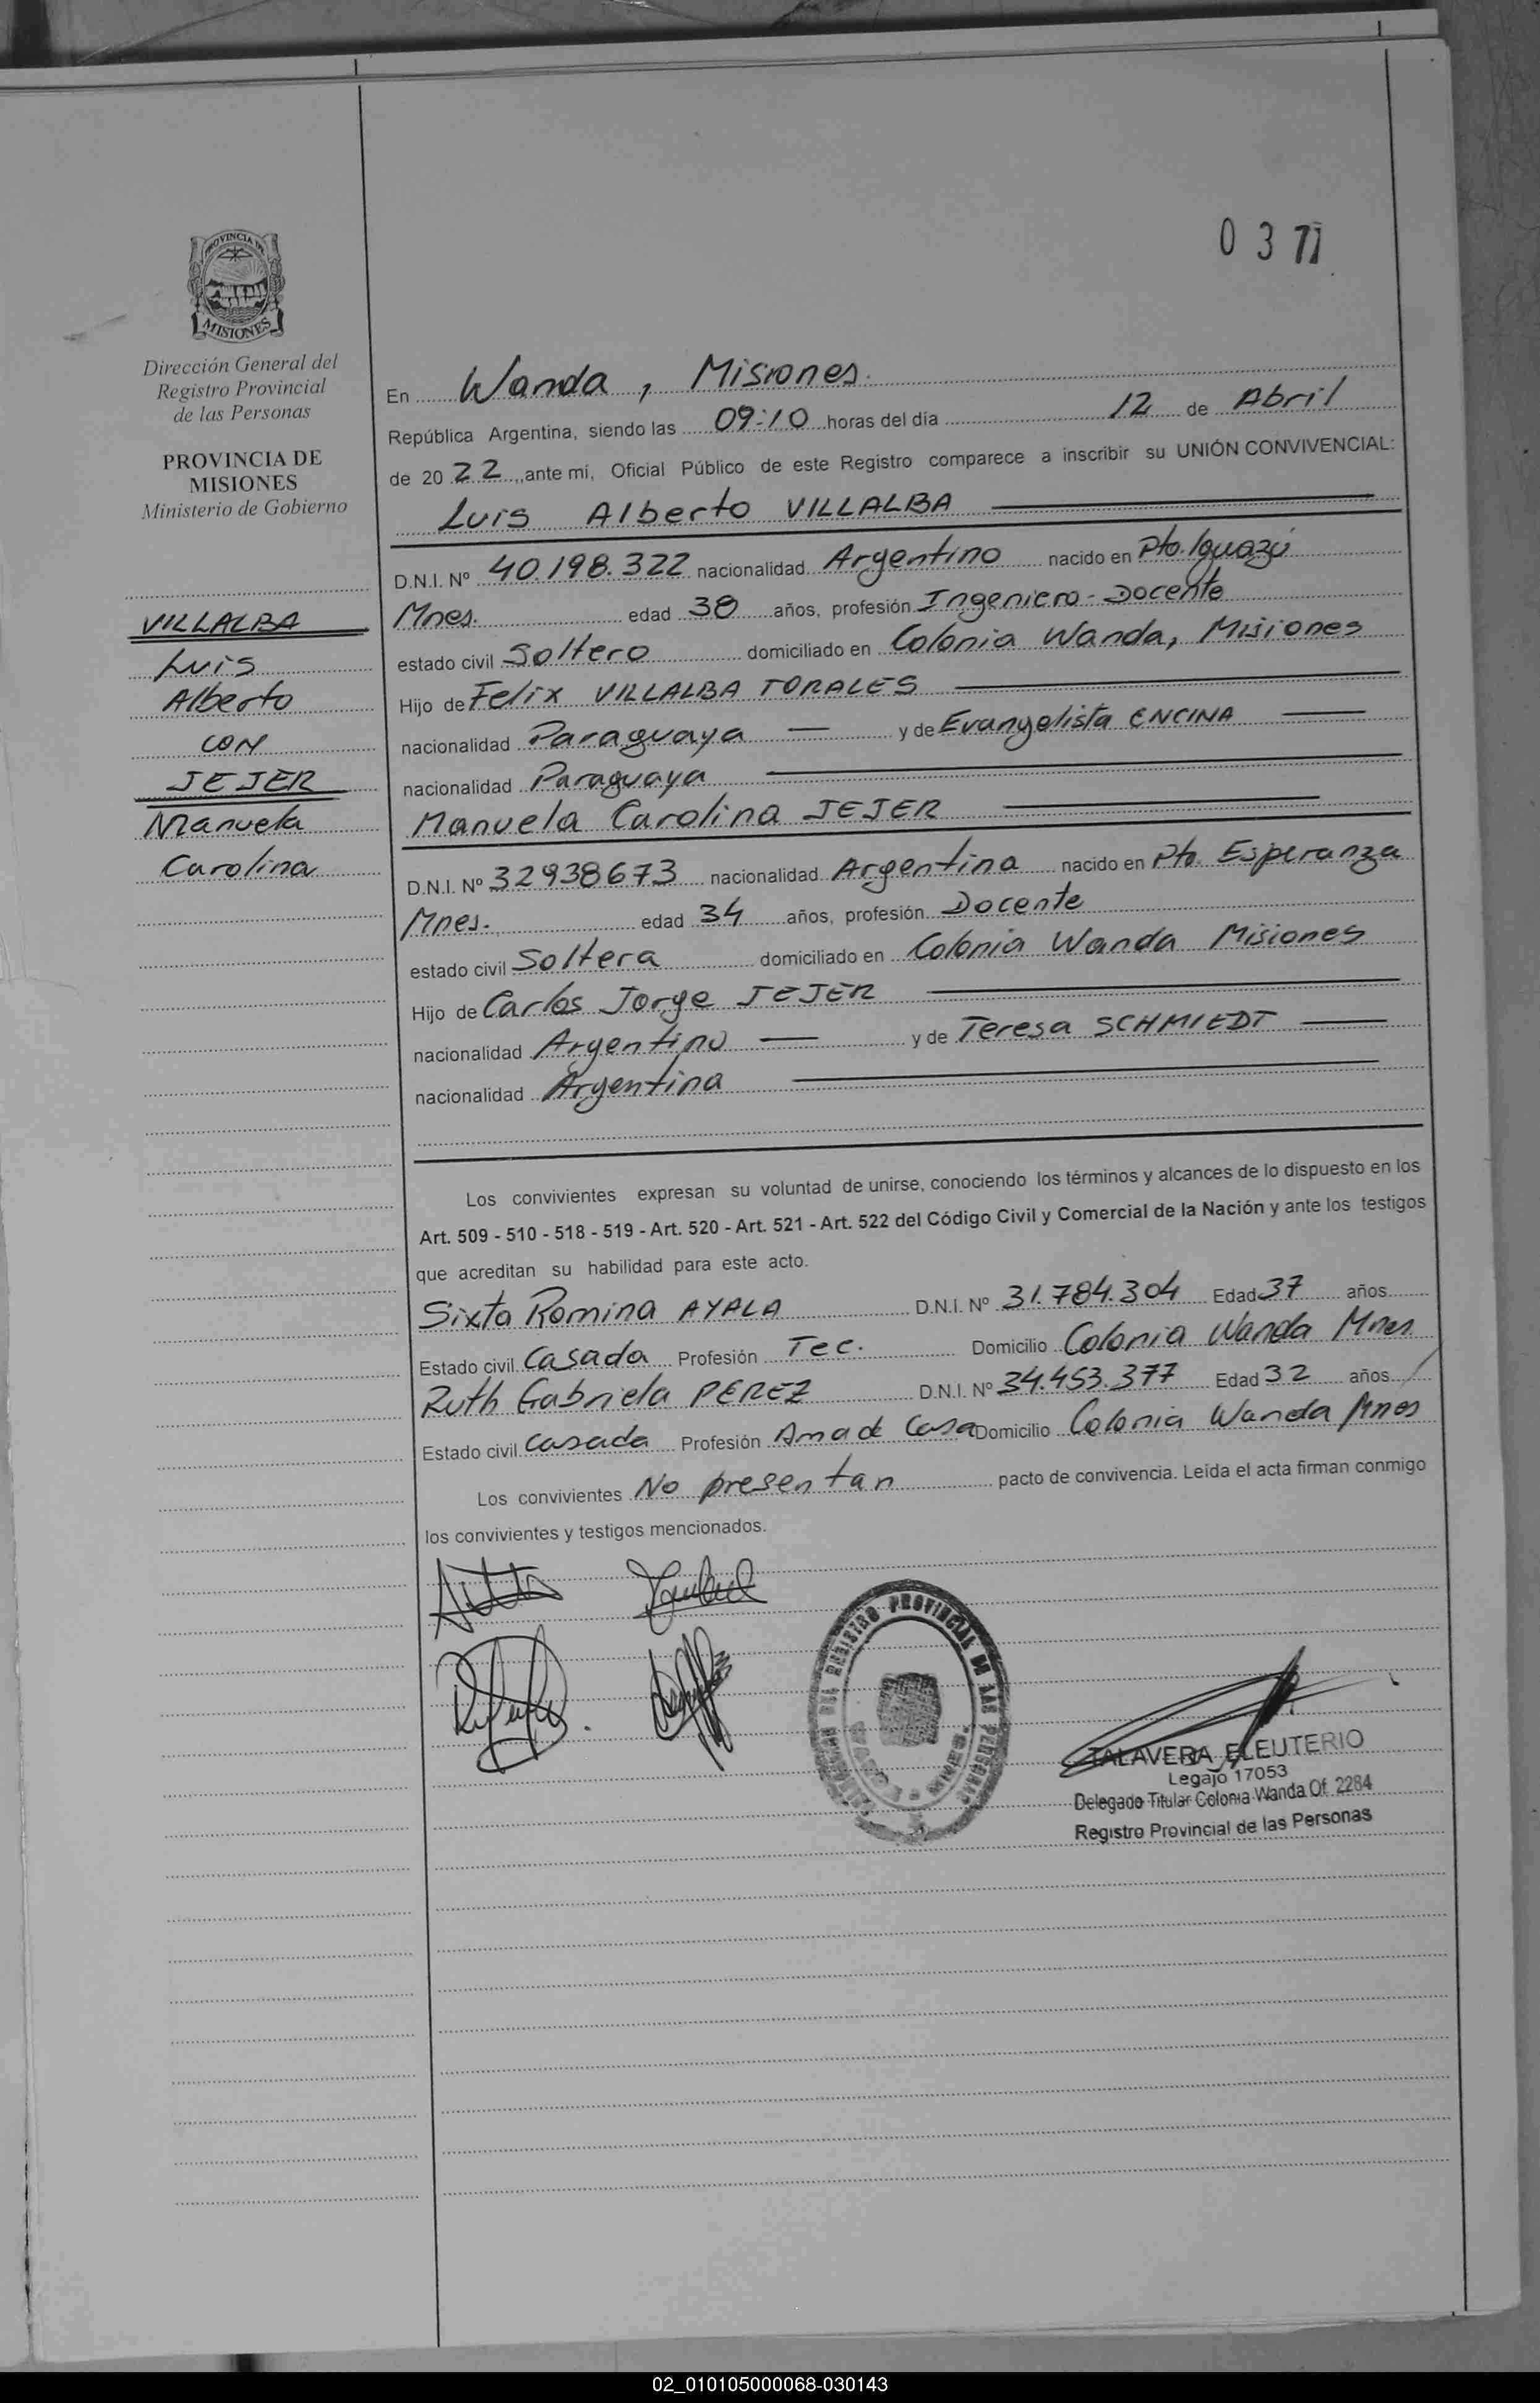 0 3 77
PROVINCIA DE
MISIONES
Dirección General del
Registro Provincial
de las Personas
PROVINCIA DE
MISIONES
Ministerio de Gobierno
VILLALBA
Luis
Alberto
CON
JEJER
Manuela
Carolina
En Wanda, Misiones.
República Argentina, siendo las 09:10 horas del día 12 de Abril
de 20 22, ante mí, Oficial Público de este Registro comparece a inscribir su UNIÓN CONVIVENCIAL:
Luis Alberto VILLALBA
D.N.I. Nº 40.198.322 nacionalidad Argentino nacido en Pto. Iguazú
Mnes. edad 38 años, profesión Ingeniero - Docente
estado civil Soltero domiciliado en Colonia Wanda, Misiones
Hijo de Felix VILLALBA TORALES
nacionalidad Paraguaya y de Evangelista ENCINA
nacionalidad Paraguaya
Manuela Carolina JEJER
D.N.I. Nº 32938673 nacionalidad Argentina nacido en Pto. Esperanza
Mnes. edad 34 años, profesión Docente
estado civil Soltera domiciliado en Colonia Wanda Misiones
Hijo de Carlos Jorge JEJER
nacionalidad Argentino y de Teresa SCHMIEDT
nacionalidad Argentina
Los convivientes expresan su voluntad de unirse, conociendo los términos y alcances de lo dispuesto en los
Art. 509 - 510 - 518 - 519 - Art. 520 - Art. 521 - Art. 522 del Código Civil y Comercial de la Nación y ante los testigos
que acreditan su habilidad para este acto.
Sixta Romina AYALA D.N.I. Nº 31.784.304 Edad 37 años
Estado civil Casada Profesión Tec. Domicilio Colonia Wanda Mnes
Ruth Gabriela PEREZ D.N.I. Nº 34.453.377 Edad 32 años
Estado civil Casada Profesión Ama de Casa Domicilio Colonia Wanda Mnes
Los convivientes No presentan pacto de convivencia. Leída el acta firman conmigo
los convivientes y testigos mencionados.
DEL REGISTRO PROVINCIAL DE LAS PERSONAS
WANDA - MNES.
TALAVERA ELEUTERIO
Legajo 17053
Delegado Titular Colonia Wanda Of. 2284
Registro Provincial de las Personas
02_010105000068-030143